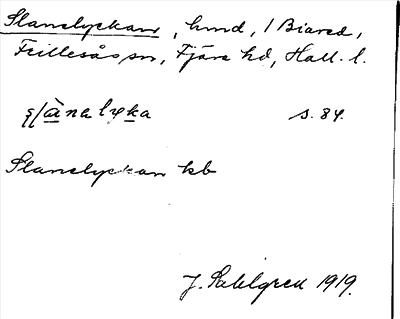 Slanslyckan, hmd, 1 Biared,
Frillesås sn, Fjäre hd, Hall. l.
s. 84.
Slanslyckan kb
J. Sahlgren 1919.